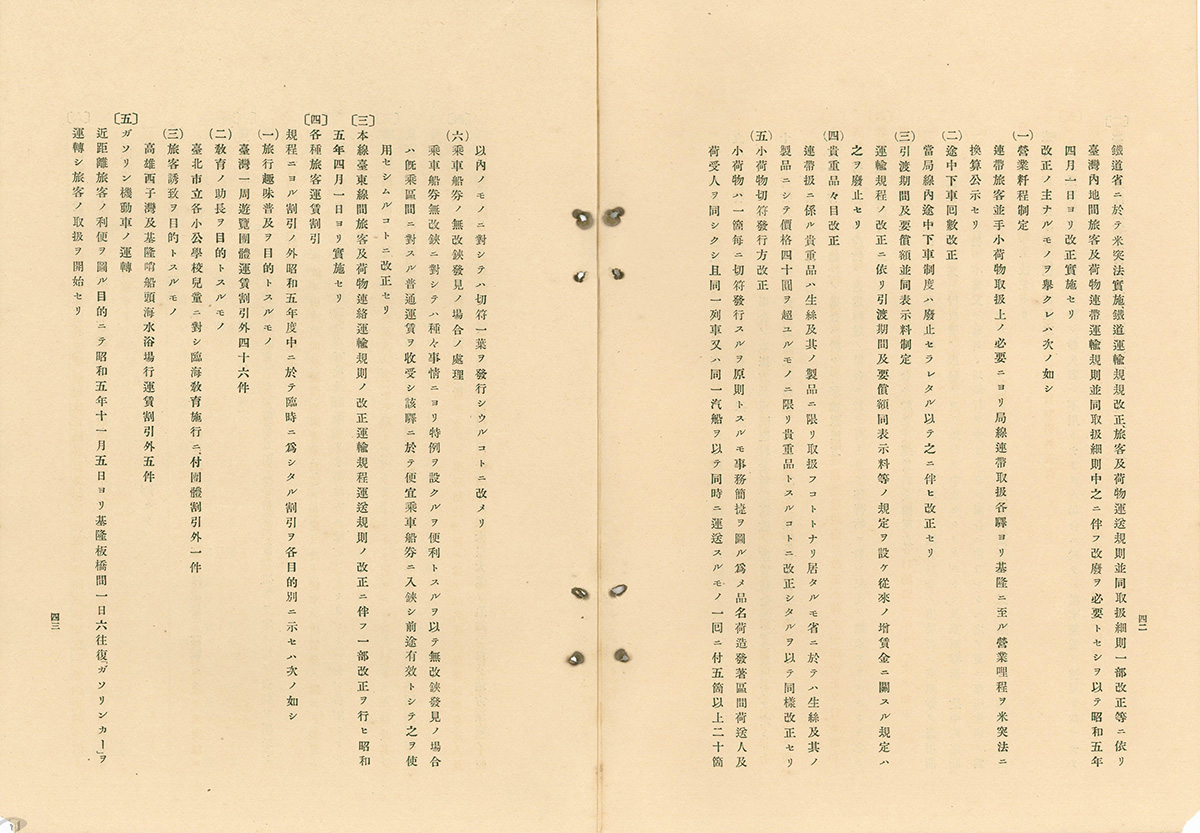 鐵道省ニ於テ米突法實施鐵道運輸規規改正、旅客及荷物運送規則並同取扱細則一部改正等ニ依リ
臺灣內地間旅客及荷物連帶運輸規則並同取扱細則中之ニ伴フ改廢ヲ必要トセシヲ以テ昭和五年
四月一日ヨリ改正實施セリ
改正ノ主ナルモノヲ擧クレハ次ノ如シ
(一)營業料程制定
連帶旅客並手小荷物取扱上ノ必要ニヨリ局線連帶取扱各驛ヨリ基隆ニ至ル營業哩程ヲ米突法ニ
換算公示セリ
(二)途中下車囘數改正
當局線內途中下車制度ハ廢止セラレタル以テ之ニ伴ヒ改正セリ
(三)引渡期間及要償額並同表示料制定
運輸規程ノ改正ニ依リ引渡期間及要償額同表示料等ノ規定ヲ設ケ從來ノ增賃金ニ關スル規定ハ
之ヲ廢止セリ
(四)貴重品々目改正
連帶扱ニ係ル貴重品ハ生絲及其ノ製品ニ限リ取扱フコトトナリ居タルモ省ニ於テハ生絲及其ノ
製品ニシテ價格四十圓ヲ超ユルモノニ限リ貴重品トスルコトニ改正シタルヲ以テ同樣改正セリ
(五)小荷物切符發行方改正
小荷物ハ一箇每ニ切符發行スルヲ原則トスルモ事務簡捷ヲ圖ル爲メ品名荷造發著區間荷送人及
荷受人ヲ同シクシ且同一列車又ハ同一汽船ヲ以テ同時ニ運送スルモノ一囘ニ付五箇以上二十箇
四二
以內ノモノニ對シテハ切符一葉ヲ發行シウルコトニ改メリ
(六)乘車船券ノ無改鋏發見ノ場合ノ處理
乘車船券無改鋏ニ對シテハ種々事情ニヨリ特例ヲ設クルヲ便利トスルヲ以テ無改鋏發見ノ場合
ハ旣乘區間ニ對スル普通運賃ヲ收受シ該驛ニ於テ便宜乘車船券ニ入鋏シ前途有效トシテ之ヲ使
用セシムルコトニ改正セリ
〔三〕本線臺東線間旅客及荷物連絡運輸規則ノ改正運輸規程運送規則ノ改正ニ伴フ一部改正ヲ行ヒ昭和
五年四月一日ヨリ實施セリ
〔四〕各種旅客運賃割引
規程ニヨル割引ノ外昭和五年度中ニ於テ臨時ニ爲シタル割引ヲ各目的別ニ示セハ次ノ如シ
(一)旅行趣味普及ヲ目的トスルモノ
臺灣一周遊覽團體運賃割引外四十六件
(二)敎育ノ助長ヲ目的トスルモノ
臺北市立各小公學校兒童ニ對シ臨海敎育施行ニ、付團體割引外一件
(三)旅客誘致ヲ目的トスルモノ
高雄西子灣及基隆哨船頭海水浴場行運賃割引外五件
〔五〕ガソリン機動車ノ運轉
近距離旅客ノ利便ヲ圖ル目的ニテ昭和五年十一月五日ヨリ基隆板橋間一日六往復「ガソリンカー」ヲ
運轉シ旅客ノ取扱ヲ開始セリ
四三